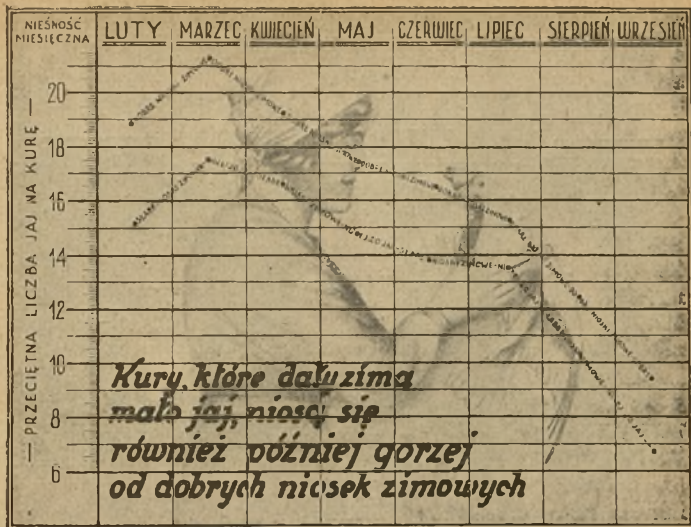 NIEŚNOŚĆ
MIESIĘCZNA
LUTY MARZEC KWIECIEŃ MAJ CZERWIEC LIPIEC SIERPIEŃ WRZESIEŃ
— PRZECIĘTNA LICZBA JAJ NA KURĘ —
20
18
16
14
12
10
8
6
Kury, które dały zimą
mało jaj, niosą się
również później gorzej
od dobrych niosek zimowych